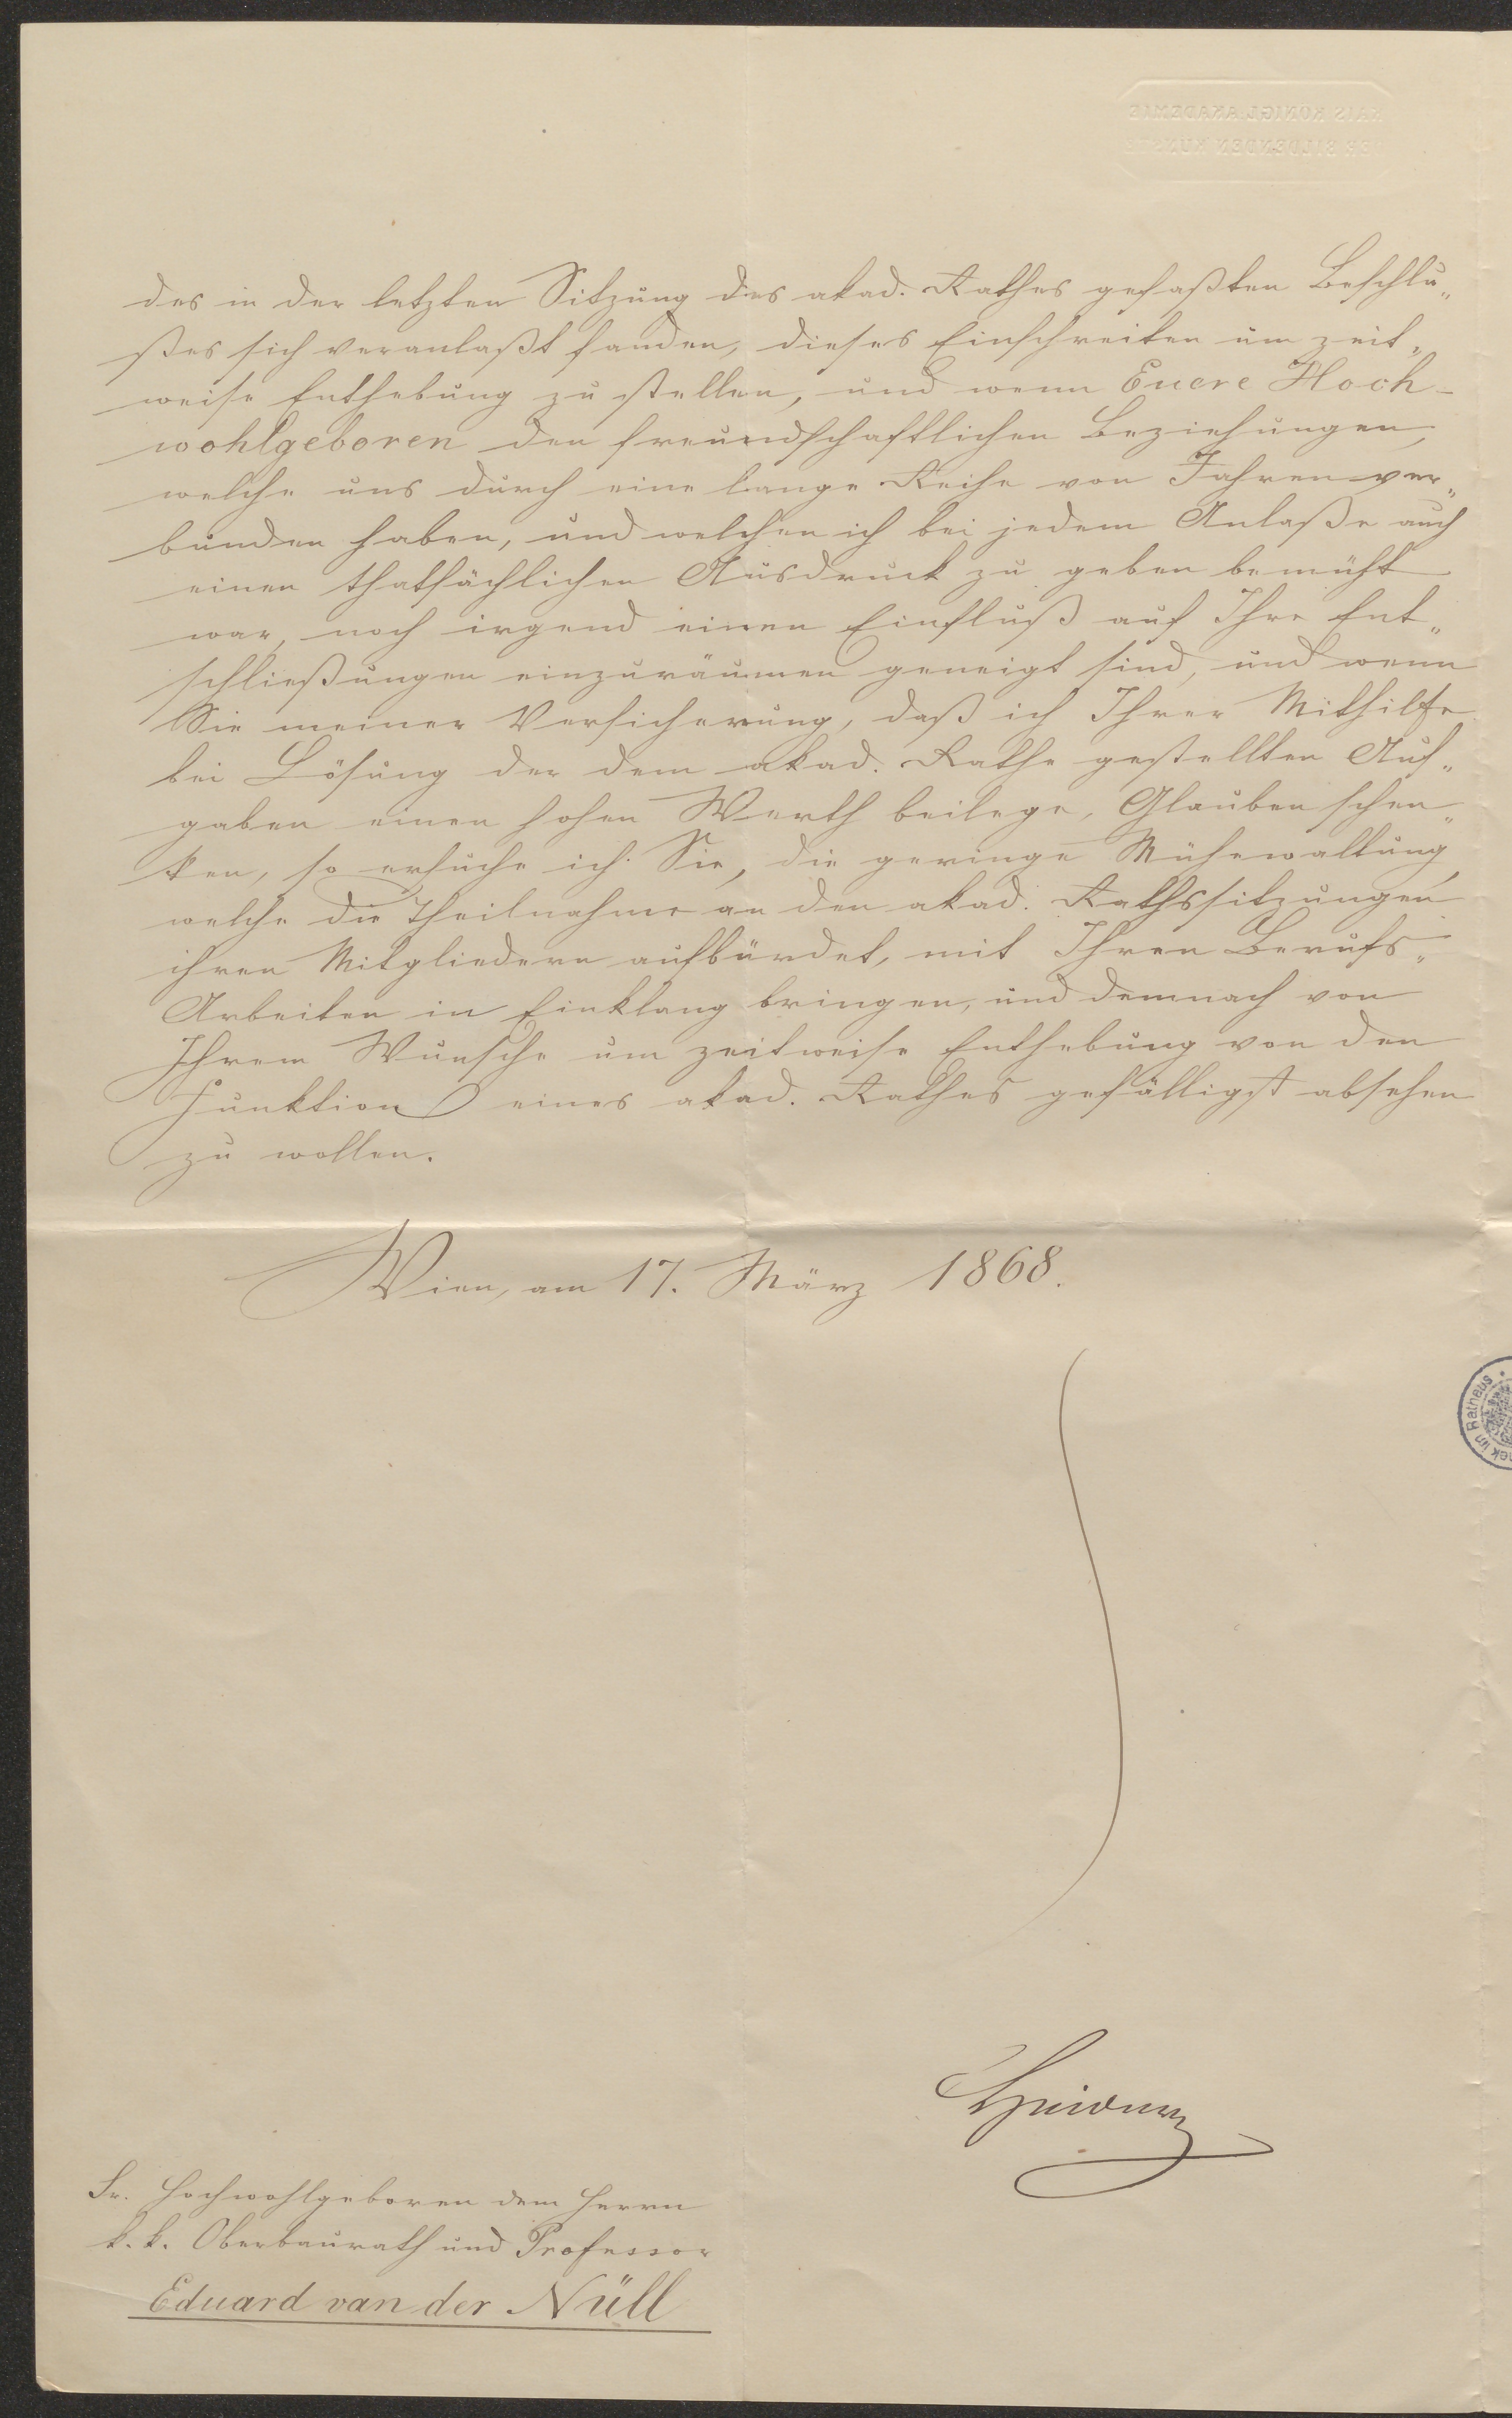 KAIS KÖNIGL AKADEMIE
DER BILDENDEN KÜNSTE
des in der letzten Sitzung des akad. Rathes gefaßten Beschlu„
ßes sich veranlaßt fanden, dieses Einschreiten um zeit„
weise Enthebung zu stellen, und wenn Euere Hoch-
wohlgeboren den freundschaftlichen Beziehungen,
welche uns durch eine lange Reihe von Jahren ver„
bunden haben, und welchen ich bei jedem Anlaße auch
einen thatsächlichen Ausdruck zu geben bemüht
war, noch irgend einen Einfluß auf Ihre Ent„
schließungen einzuräumen geneigt sind, und wenn
Sie meiner Versicherung, daß ich Ihrer Mithilfe
bei Lösung der dem akad. Rathe gestellten Auf„
gaben einen hohen Werth beilege, Glauben schen„
ken, so ersuche ich Sie, die geringe Mühewaltung,
welche die Theilnahme an den akad. Rathssitzungen
ihren Mitgliedern aufbürdet, mit Ihren Berufs„
Arbeiten in Einklang bringen, und demnach von
Ihrem Wunsche um zeitweise Enthebung von den
Funktion eines akad. Rathes gefälligst absehen
zu wollen.
Wien, am 17. März 1868.
im Rathaus
Sr. Hochwohlgeboren dem Herrn
k. k. Oberbaurath und Professor
Eduard van der Nüll